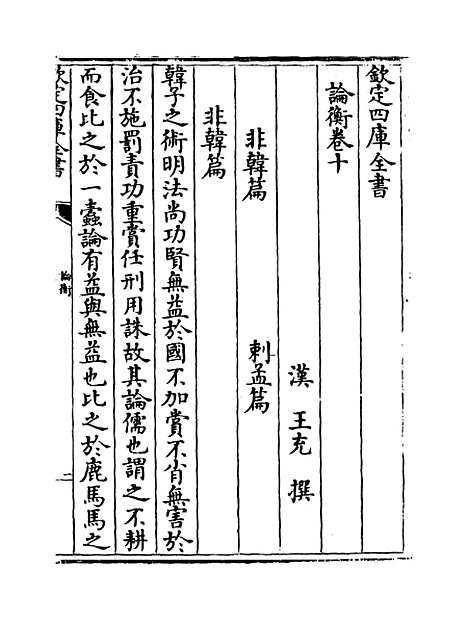 欽定四庫全書
論衡卷十
漢 王充 撰
非韓篇 刺孟篇
非韓篇
韓子之術明法尚功賢無益於國不加賞不肖無害於
治不施罰責功重賞任刑用誅故其論儒也謂之不耕
而食比之於一蠧論有益與無益也比之於鹿馬馬之
欽定四庫全書
論衡